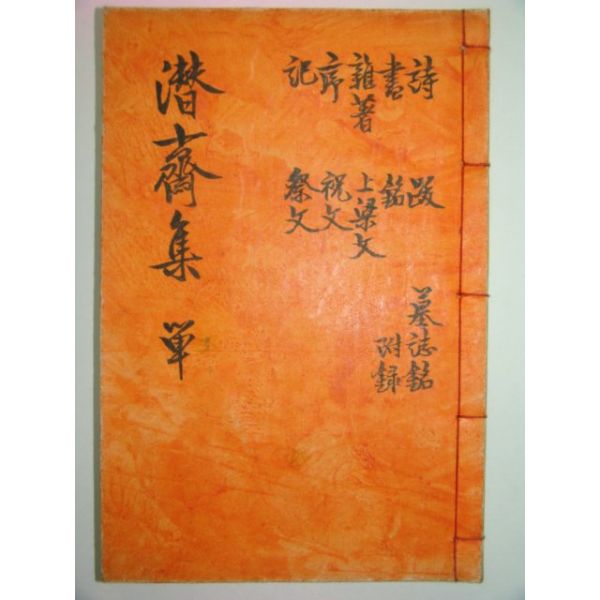 潜齋集 単
詩
書
雜著
序
記
跋
銘
上梁文
祝文
祭文
墓誌銘
附録